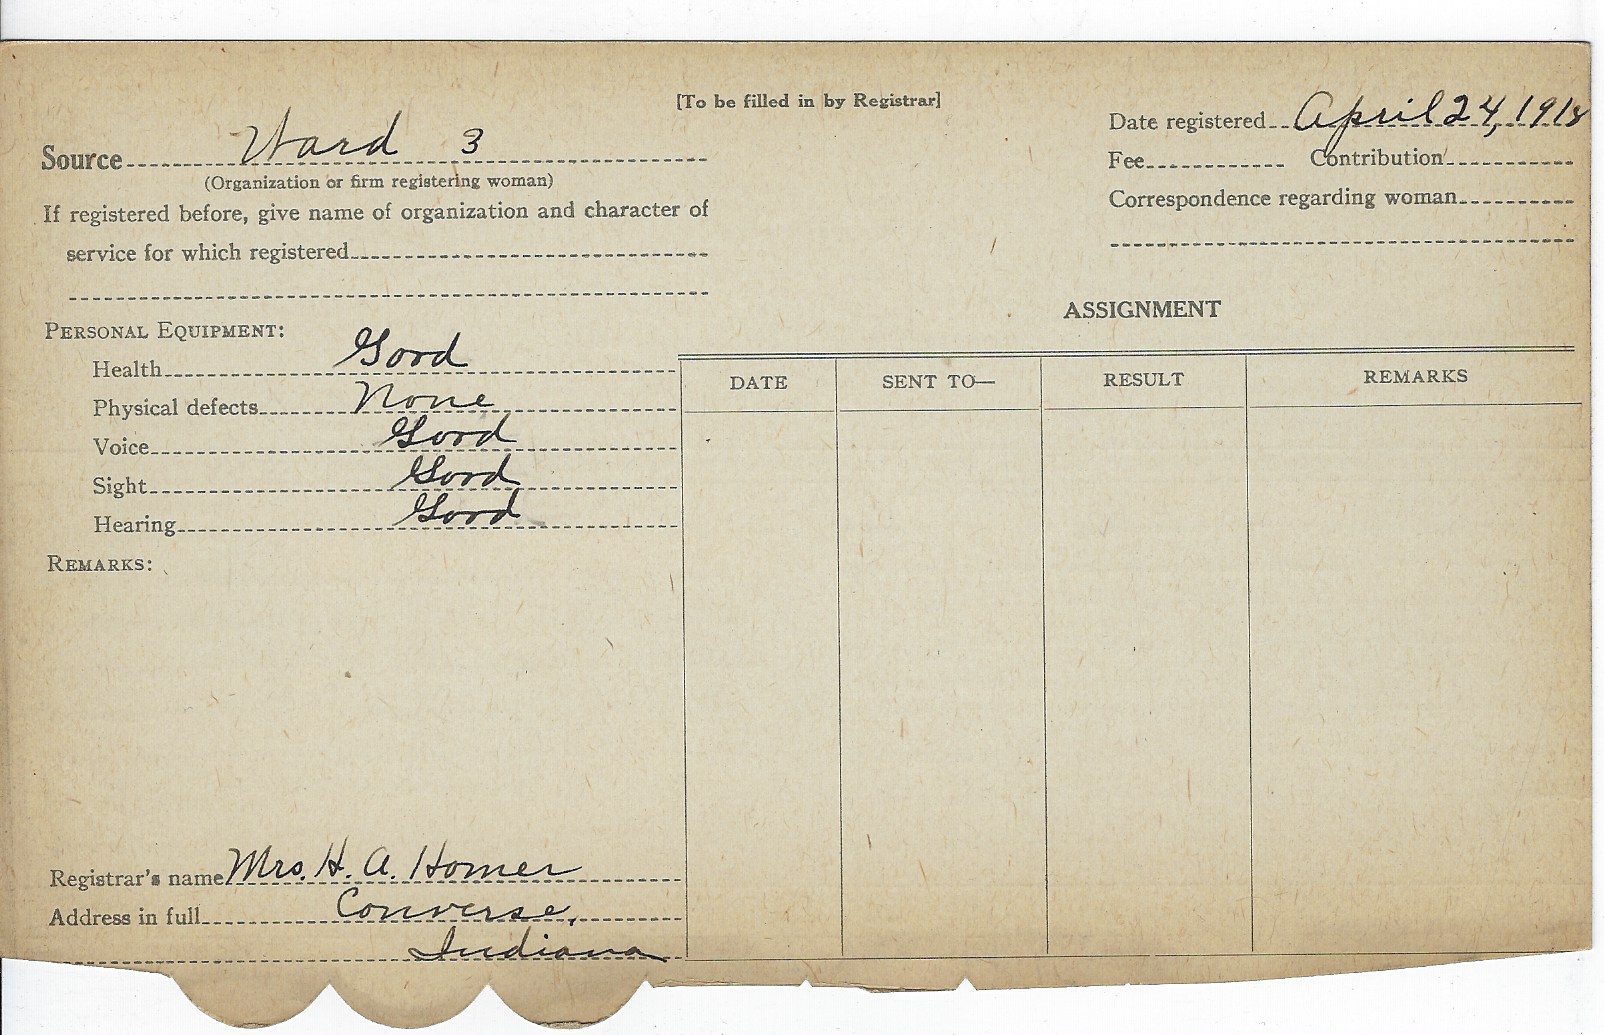 [To be filled in by Registrar]
Source Ward 3
(Organization or firm registering woman)
If registered before, give name of organization and character of
service for which registered
Date registered April 24, 1918
Fee Contribution
Correspondence regarding woman
PERSONAL EQUIPMENT:
Health Good
Physical defects None
Voice Good
Sight Good
Hearing Good
REMARKS:
Registrar's name Mrs. H. A. Homer
Address in full Converse,
Indiana
ASSIGNMENT
DATE SENT TO— RESULT REMARKS